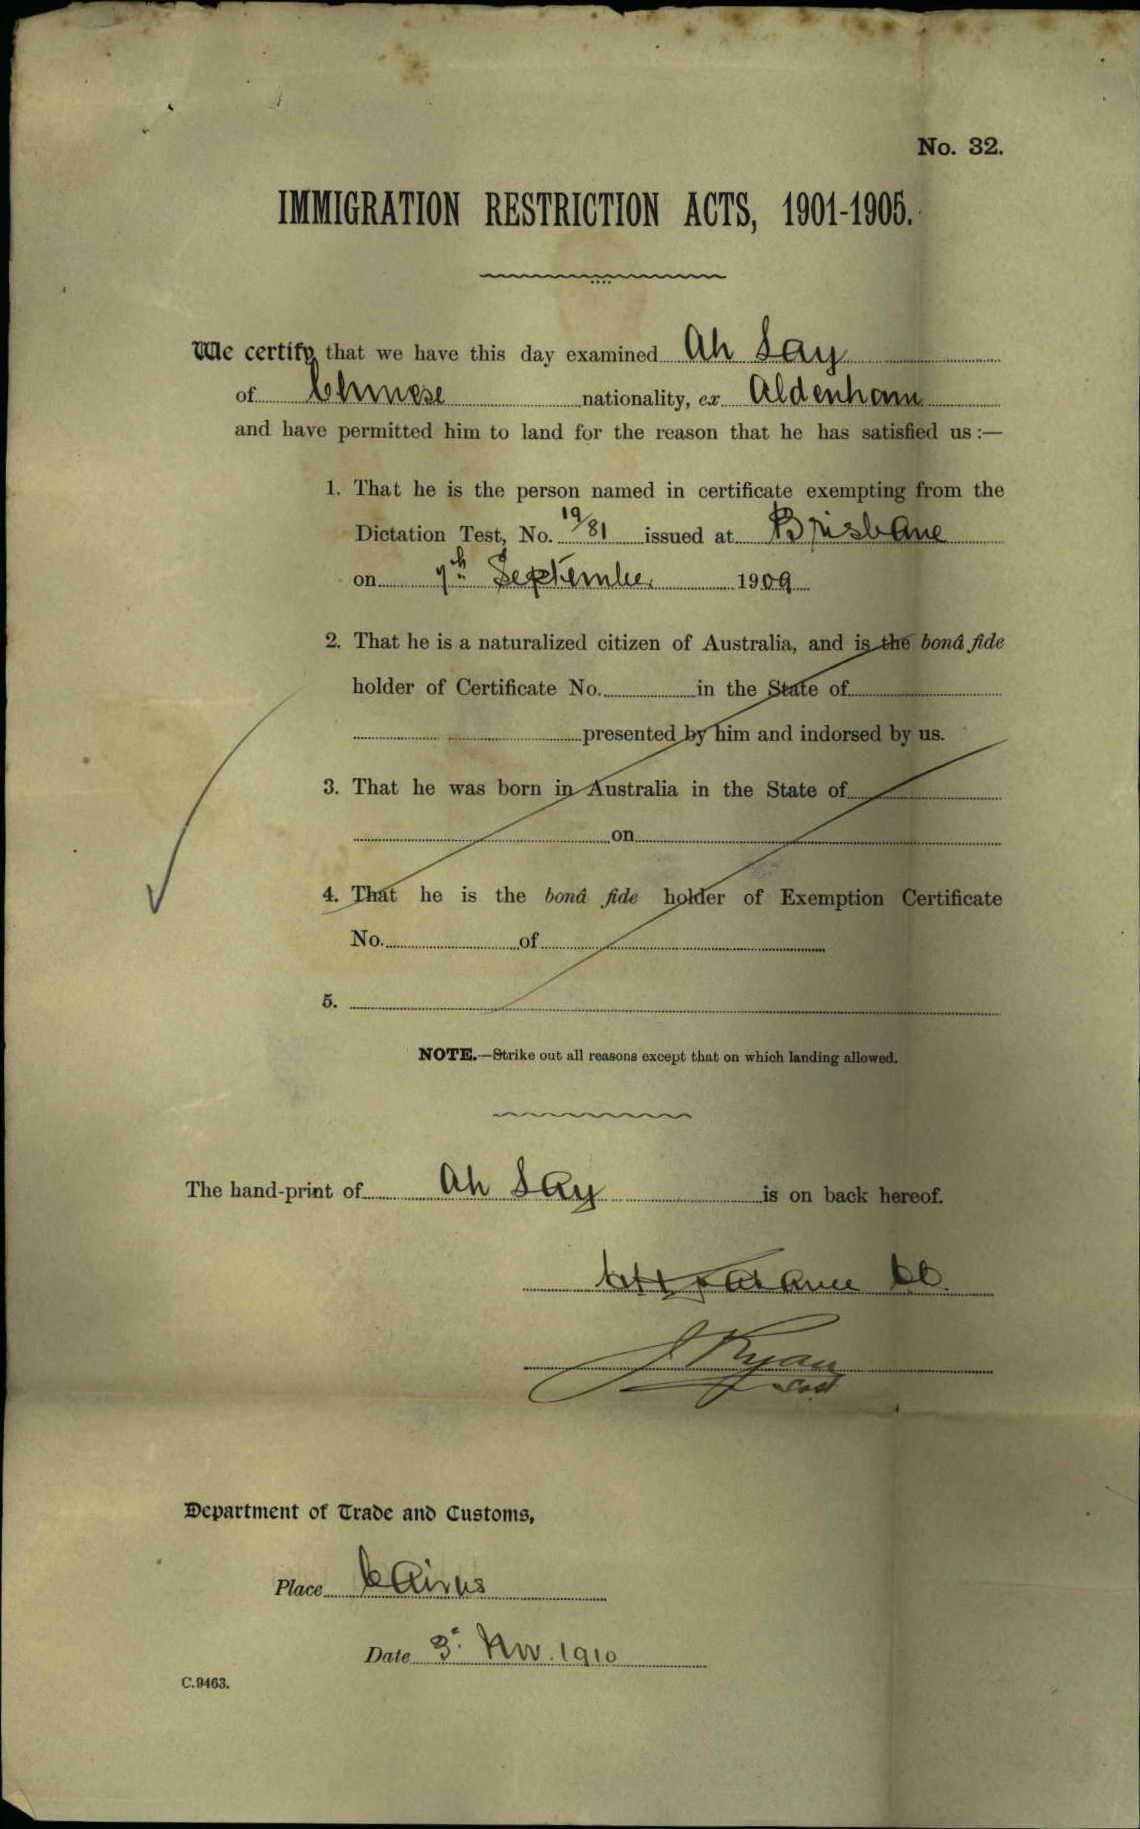 No. 32.
IMMIGRATION RESTRICTION ACTS, 1901-1905.
We certify that we have this day examined Ah Say
of Chinese nationality, ex Aldenham
and have permitted him to land for the reason that he has satisfied us :—
1. That he is the person named in certificate exempting from the
Dictation Test, No. 19/81 issued at Brisbane
on 7th September 1909
2. That he is a naturalized citizen of Australia, and is the bonâ fide
holder of Certificate No. in the State of
presented by him and indorsed by us.
3. That he was born in Australia in the State of
on
4. That he is the bonâ fide holder of Exemption Certificate
No. of
5.
NOTE.—Strike out all reasons except that on which landing allowed.
The hand-print of Ah Say is on back hereof.
J Ryan
Department of Trade and Customs,
Place Cairns
Date 3. Nov. 1910
C.9463.